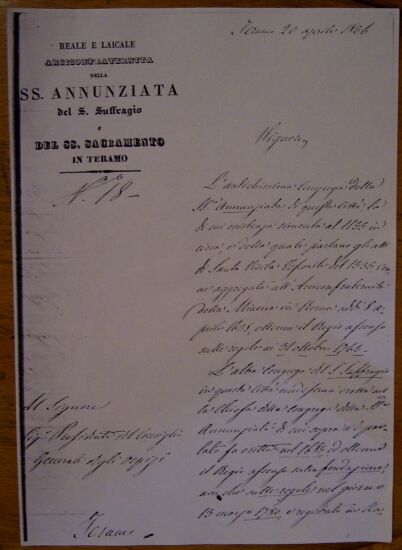 Teramo 20 aprile 1856
REALE E LAICALE
ARCICONFRATERNITA
DELLA
SS. ANNUNZIATA
del S. Suffragio
E
DEL SS. SACRAMENTO
IN TERAMO
N.° 18 -
Signore,
L'antichissima Congrega della
SS.ma Annunziata di questa Città, la
di cui esistenza rimonta al 1155 in
circa, e della quale parlano gli atti
di Santa Visita del 1535
aggregata all'Arciconfraternita
della Minerva in Roma addì 8 a-
prile 1638, ottenne il Regio assenso
sulle regole ai 31 ottobre 1766.
L'altra Congrega del S. Suffragio
in questa Città medesima eretta nel-
la Chiesa della Congrega della SS.ma
Annunziata di cui sopra si è par-
lato fu eretta nel ed ottenne
il Regio assenso sulla fondazione,
non che sulle regole nel giorno
13 marzo 1780, e registrato in
Al Signore
Sig. Presidente del Consiglio
Generale degli Ospizi
Teramo